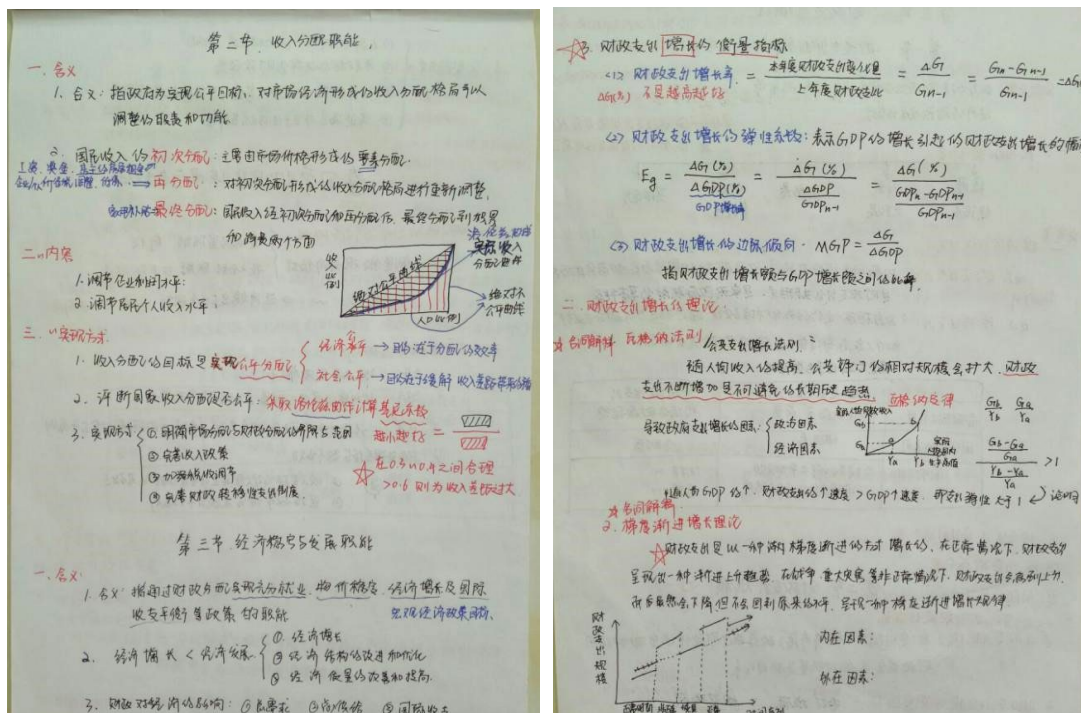 第二节. 收入分配职能.
一. 含义
1. 含义: 指政府为实现公平目标、对市场经济形成的收入分配格局予以
调整的职责和功能
2. 国民收入的初次分配: 主要由市场价格形成的要素分配.
再分配: 对初次分配形成的收入分配格局进行重新调整.
最终分配: 国民收入经初次分配和再分配后, 最终分配到投资
和消费两个方面
二. 内容
1. 调节企业利润水平:
2. 调节居民个人收入水平:
收入比例
绝对公平曲线
人口比例
实际收入
分配曲线
绝对不
公平曲线
三. 实现方式
1. 收入分配的目标是实现公平分配
经济公平 → 目的在于分配的效率
社会公平 → 目的在于缓解收入差距
2. 评断国家收入分配是否公平: 采取洛伦兹曲线计算基尼系数
越小越好 =
3. 实现方式
① 明确市场分配与财政分配的界限与范围
② 完善收入政策
③ 加强税收调节
④ 完善财政转移性支出制度
在0.3~0.4之间合理
>0.6 则为收入差距过大
第三节. 经济稳定与发展职能
一. 含义:
1. 含义: 指通过财政分配实现充分就业、物价稳定、经济增长及国际
收支平衡等政策的职能
宏观经济政策目标.
2. 经济增长 < 经济发展
①. 经济增长
② 经济结构的改进和优化
③ 经济质量的改善和提高.
3. 财政对经济的影响: ① 总需求 ② 总供给 ③ 国际收支
3. 财政支出增长的衡量指标
(1) 财政支出增长率 = 本年度财政支出变化量 / 上年度财政支出 = ΔG / Gn-1 = Gn-Gn-1 / Gn-1
ΔG(%) 不是越高越好
(2) 财政支出增长的弹性系数: 表示GDP的增长引起的财政支出增长的幅
Eg = ΔG(%) / ΔGDP(%) = ΔG(%) / ΔGDP/GDPn-1 = ΔG(%) / GDPn-GDPn-1/GDPn-1
GDP增长率
(3) 财政支出增长的边际倾向. MGP = ΔG / ΔGDP
指财政支出增长额与GDP增长额之间的比率.
二. 财政支出增长的理论.
名词解释 瓦格纳法则 / 公共支出增长法则
随人均收入的提高, 公共部门的相对规模会扩大. 财政
支出不断增加是不可避免的长期历史趋势.
瓦格纳定律
导致政府支出增长的因素:
政治因素
经济因素
Gb
Ga
Ya Yb
Gb/Yb Ga/Ya
Gb-Ga/Ga / Yb-Ya/Ya > 1
随人均GDP的↑. 财政支出的↑速度 > GDP↑速度. 即支出弹性大于1
名词解释
2. 梯度渐进增长理论
财政支出是以一种阶梯渐进的方式增长的, 在正常情况下. 财政支出
呈现出一种渐进上升趋势. 在战争, 重大灾害等非正常情况下. 财政支出会急剧上升.
而后虽然会下降. 但不会回到原来的水平. 呈现一种梯度渐进增长规律
财政支出规模
内在因素:
外在因素: